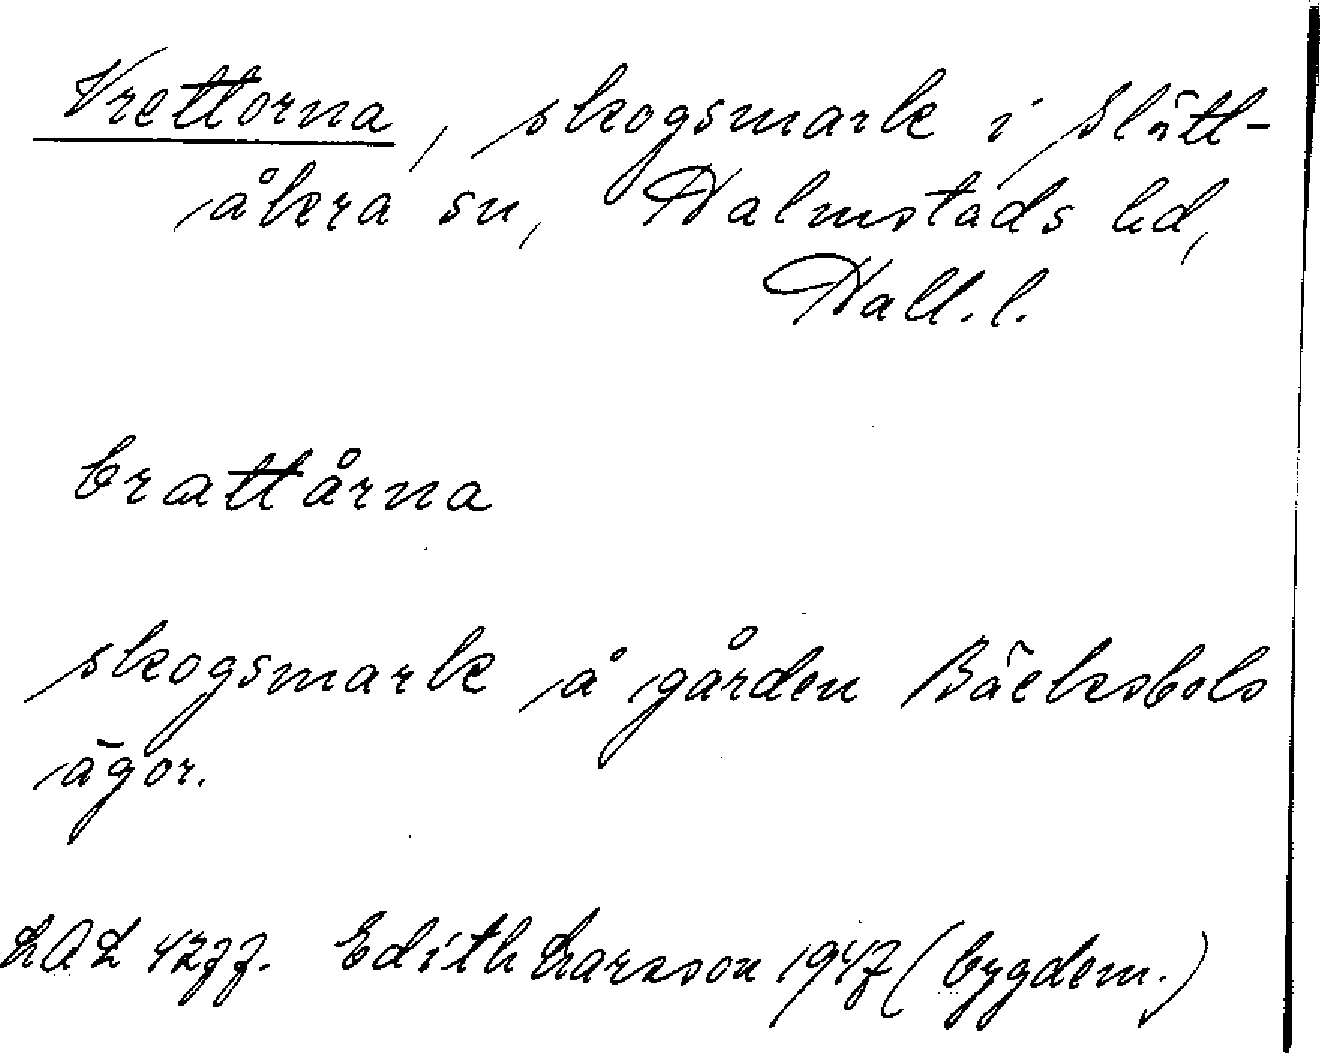 Vrettorna, skogsmark i Slätt-
åkra sn, Halmstads hd,
Hall. l.
brættårna
skogsmark å gården Bäcksbols
ägor.
LAL 4277. Edith Larsson 1947 (bygdem.)